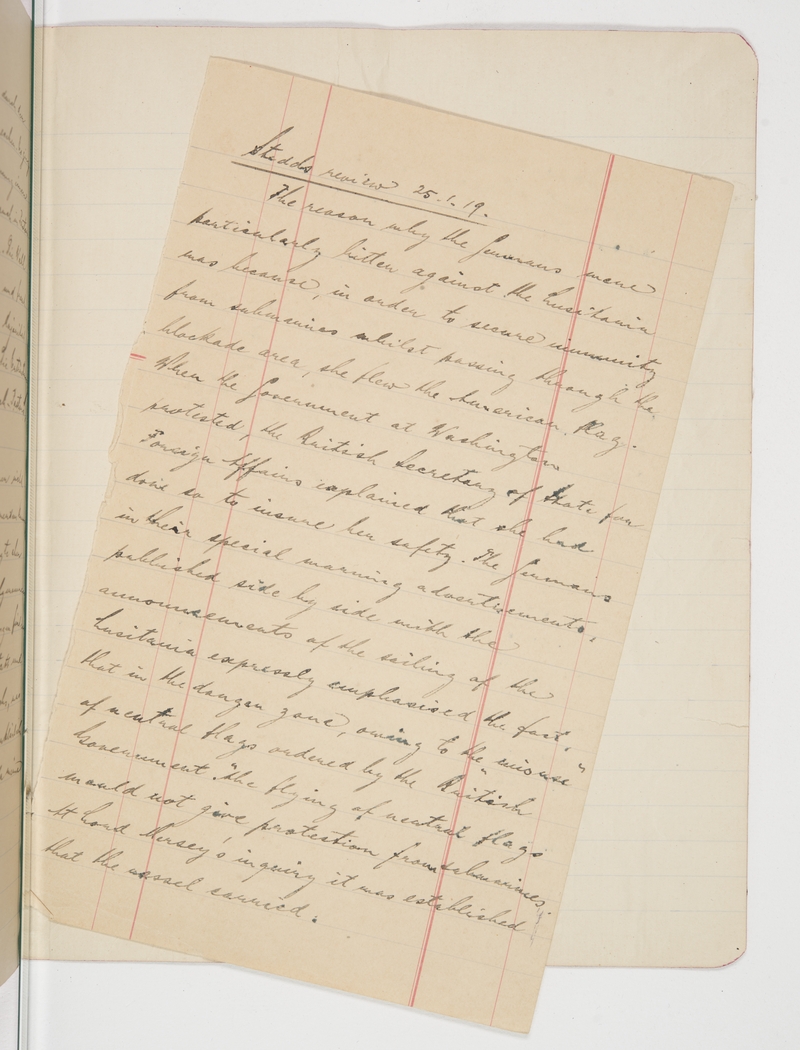 Stedds review 25.1.19.
The reason why the Germans were
particularly bitter against the Lusitania
was because, in order to secure immunity
from submarines whilst passing through the
blockade area, she flew the American flag.
When the Government at Washington
protested, the British Secretary of State for
Foreign Affairs explained that she had
done so to insure her safety. The Germans
in their special warning advertisements,
published side by side with the
announcements of the sailing of the
Lusitania expressly emphasised the fact,
that in the danger zone, owing to the "misuse"
of neutral flags ordered by the British
Government. "the flying of neutral flags
would not give protection from submarines.
At Lord Mersey's inquiry it was established
that the vessel carried: